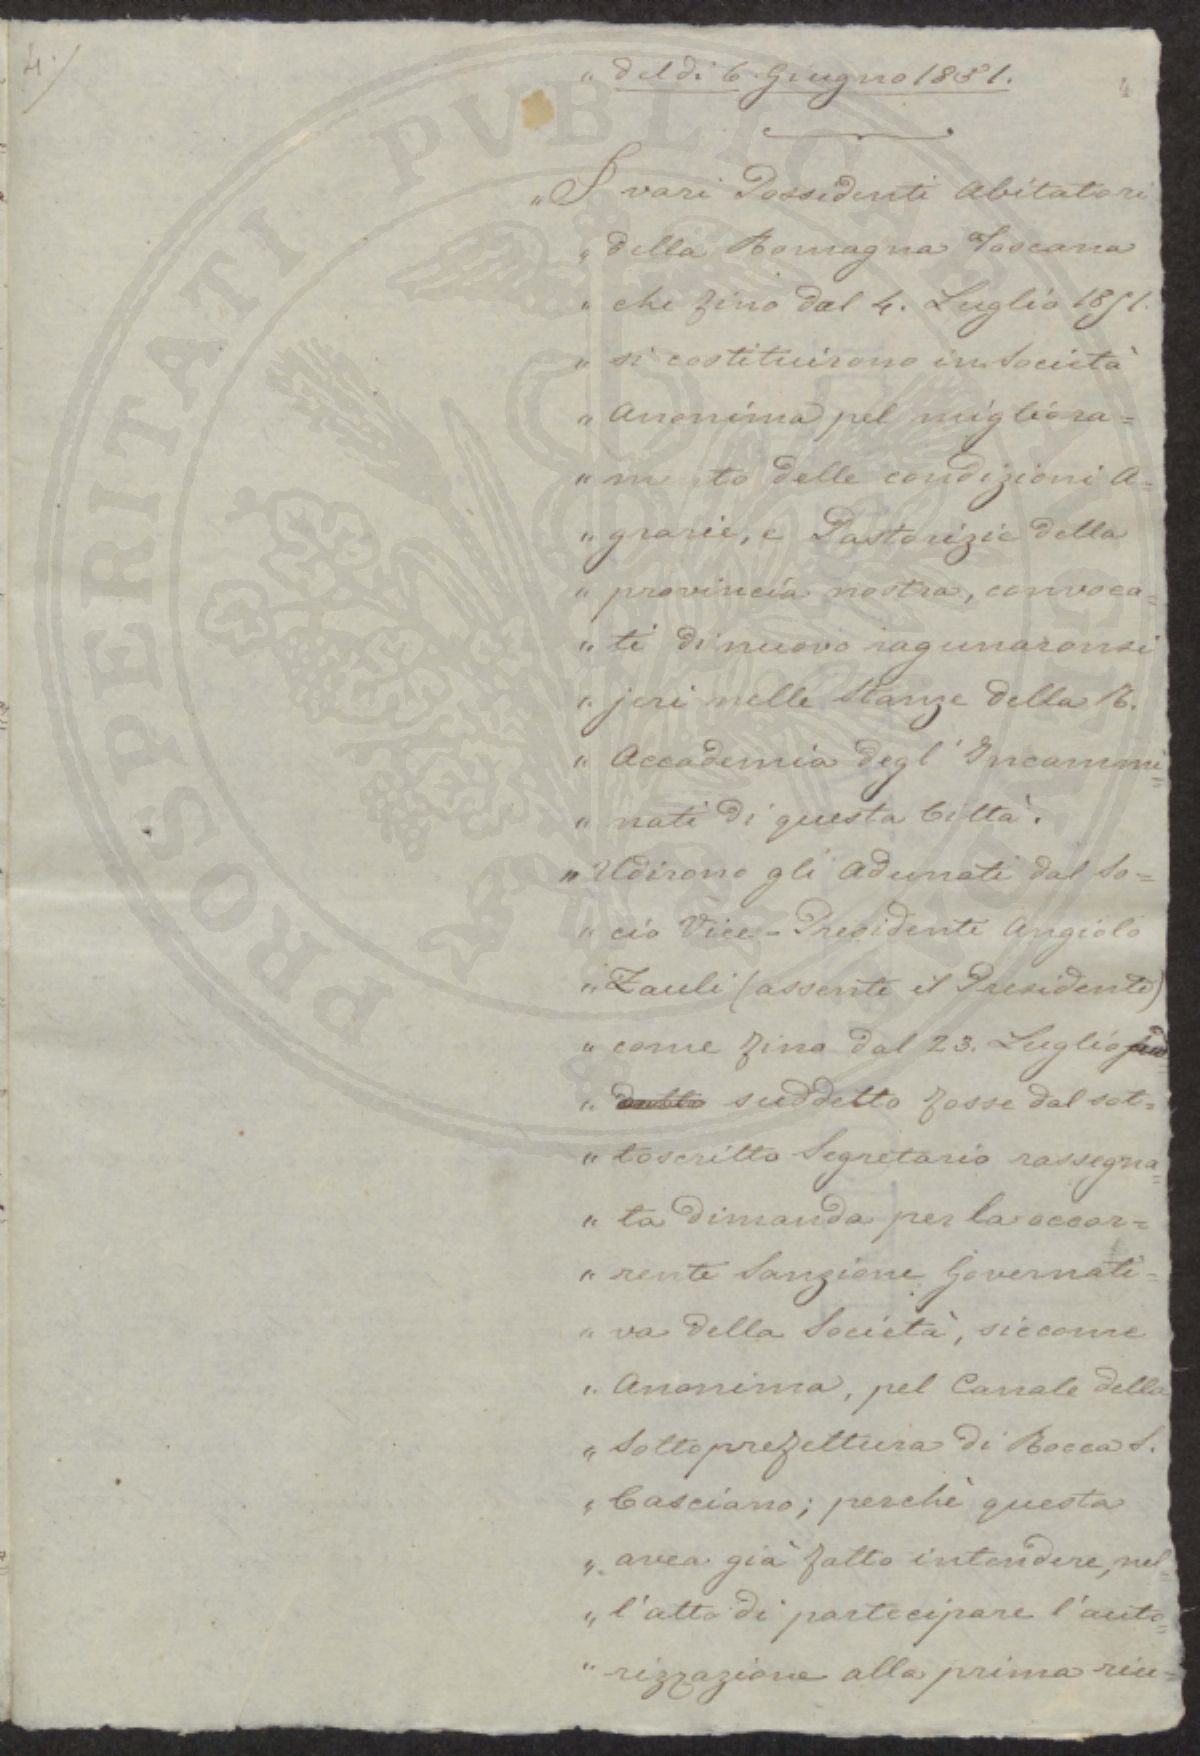 4.
4
„ del dì 6 Giugno 1851.
„ I vari Possidenti Abitatori
„ della Romagna Toscana
„ che fino dal 4. Luglio 1851.
„ si costituirono in Società
„ Anonima pel migliora=
„ mento delle condizioni A=
„ grarie, e Pastorizie della
„ provincia nostra, convoca=
„ ti di nuovo ragunaronsi
„ jeri nelle Stanze della R.
„ Accademia degl' Incammi=
„ nati di questa Città.
„ Udirono gli Adunati dal So=
„ cio Vice-Presidente Angiolo
„ Zauli (assente il Presidente)
„ come fino dal 23. Luglio
„ suddetto fosse dal sot=
„ toscritto Segretario rassegna=
„ ta dimanda per la occor=
„ rente Sanzione Governati=
„ va della Società, siccome
„ Anonima, pel Canale della
„ Sottoprefettura di Rocca S.
„ Casciano; perchè questa
„ avea già fatto intendere, nel=
„ l'atto di partecipare l'auto=
„ rizzazione alla prima riu=
PROSPERITATI PUBLICAE AUGENDAE